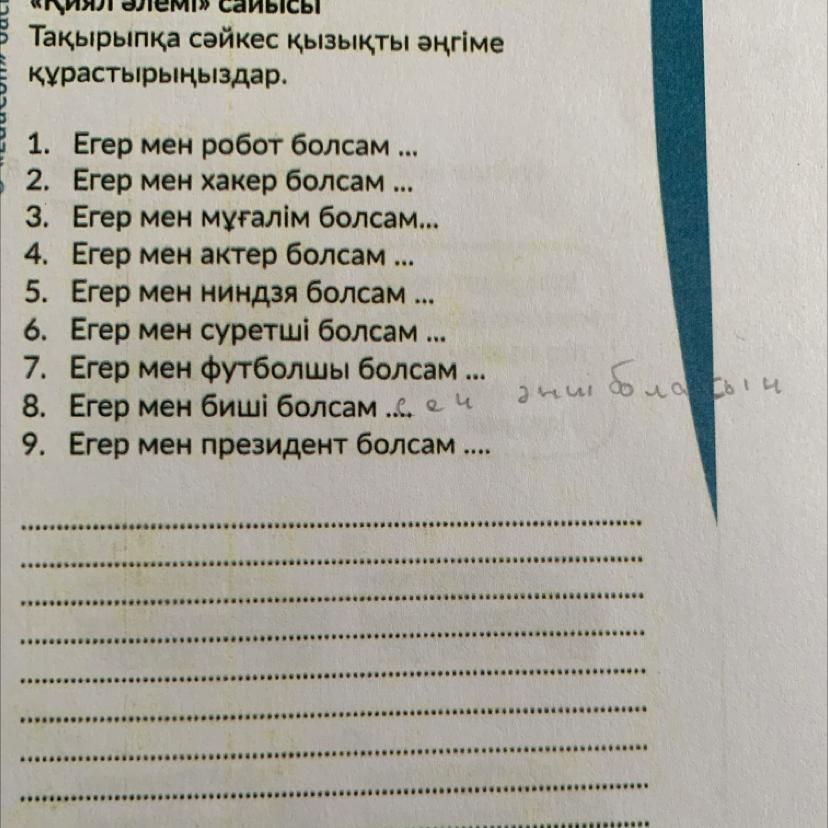 «Қиял әлемі» сайысы
Тақырыпқа сәйкес қызықты әңгіме
құрастырыңыздар.
1. Егер мен робот болсам ...
2. Егер мен хакер болсам ...
3. Егер мен мұғалім болсам...
4. Егер мен актер болсам ...
5. Егер мен ниндзя болсам ...
6. Егер мен суретші болсам ...
7. Егер мен футболшы болсам ...
8. Егер мен биші болсам .... сен әнші боласын
9. Егер мен президент болсам ....